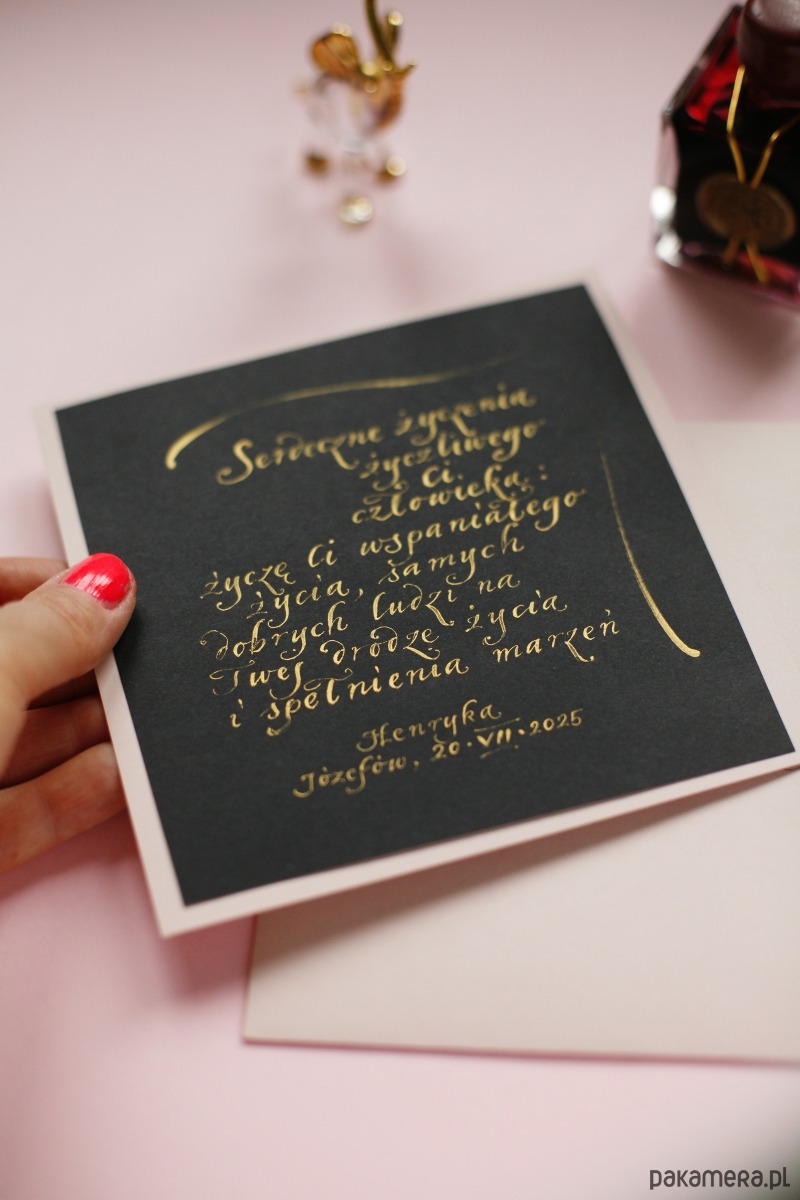 Serdeczne życzenia
życzliwego
Ci
człowieka:
życzę Ci wspaniałego
życia, samych
dobrych ludzi na
Twej drodze życia
i spełnienia marzeń
Henryka
Józefów, 20.VII.2025
pakamera.pl